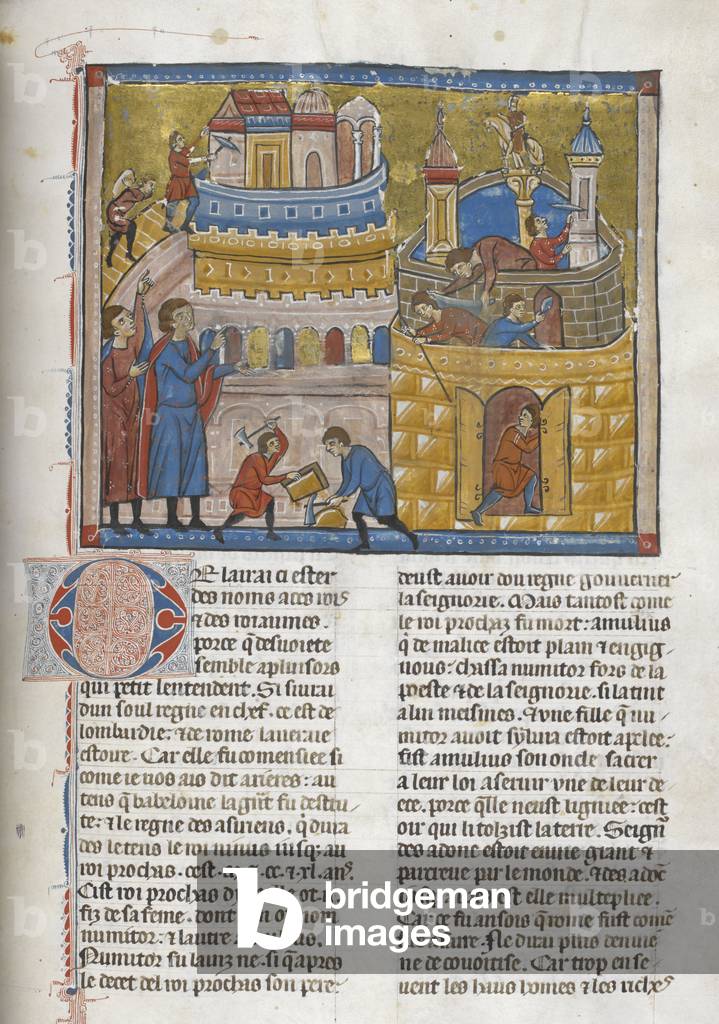 E lairai ci ester
des noms a ces rois
⁊ des roiaumes.
porce q̄ desuoiete
semble a plusors
qui petit lentendent. Si siurai
dun soul regne en chef. ce est de
lombardie: ⁊ de rome la ueraie
estoire. Car elle fu comensiee si
come ie uos ais dit arieres: au
tens q̄ babeloine la grāt fu destru
te: ⁊ le regne des asuriens. q̄ dura
des le tens le roi ninus iusq; au
roi prochas. cest ⁊ xl. ans.
Cist roi prochas ot
fiz de sa feme. dont
numitor: ⁊ lautre
Numitor fu lainz ne. si q̄ apres
le decet del roi prochas son pere
deust auoir dou regne gouuerner
la seignorie. Mais tantost come
le roi prochaz fu mort: amulius
q̄ de malice estoit plain ⁊ engig
nous: chassa numitor fors de la
poeste ⁊ de la seignorie. si la tint
a lui meismes. ⁊ vne fille q̄ nu
mitor auoit sylvia estoit apelee:
fist amulius son oncle sacrer
a leur loi a seruir vne de leur de
ece. porce q̄lle neust ligniee: cest
oir qui li tolsist la terre. Seign̄
des adonc estoit enuie grant ⁊
parcreue par le monde. ⁊ des adōc
est elle multepliee.
Car ce fu ansois q̄ rome fust comē
Ne durau plus denuie
ne de couoitise. Car trop en se
uent les haus homes ⁊ les riches
bridgeman
images